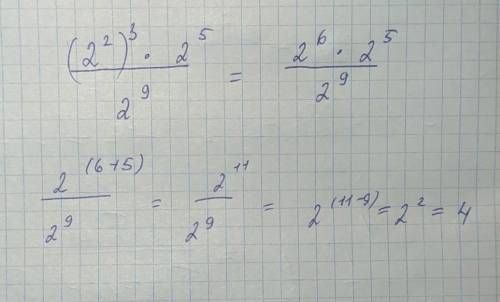 (2²)³ · 2⁵ / 2⁹ = 2⁶ · 2⁵ / 2⁹
2⁽⁶⁺⁵⁾ / 2⁹ = 2¹¹ / 2⁹ = 2⁽¹¹⁻⁹⁾ = 2² = 4